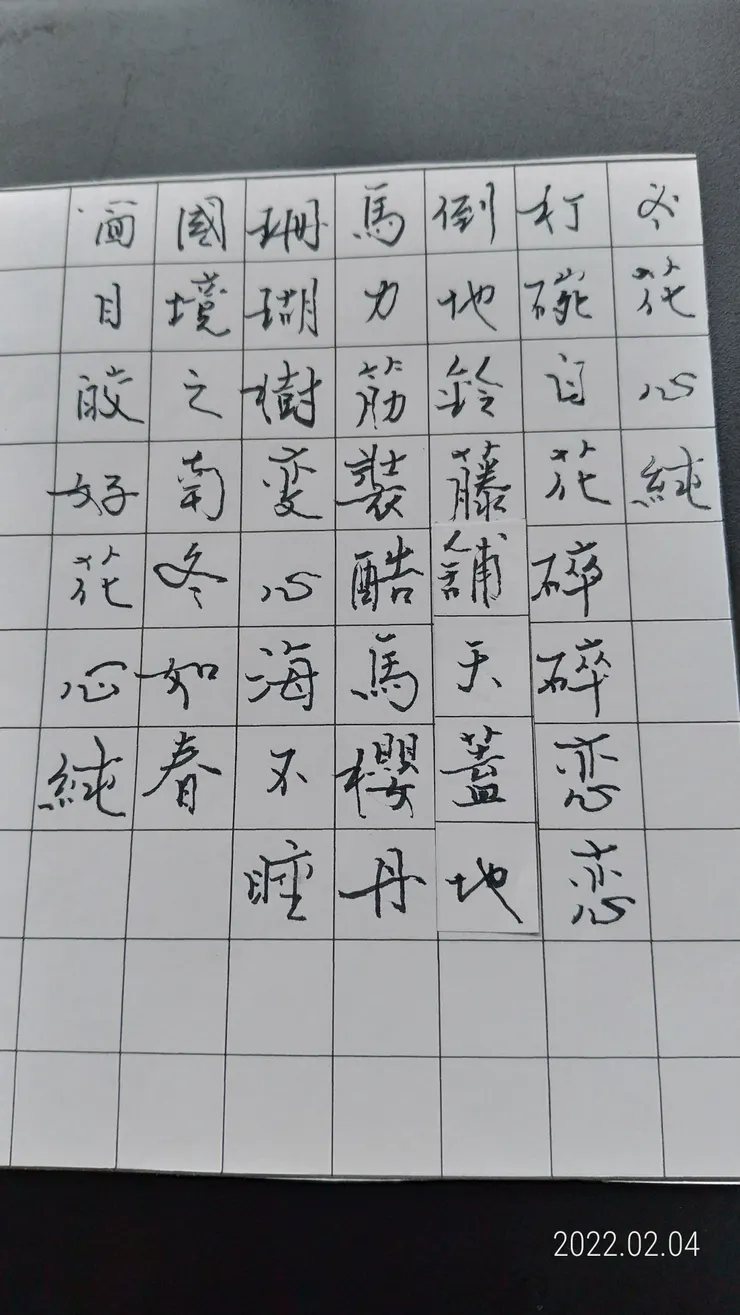 冬花心純
打碗白花碎碎恋恋
倒地鈴藤舖天蓋地
馬力筋裝酷馬櫻丹
珊瑚樹変心海不睡
國境之南冬如春
面目皎好花心純
2022.02.04